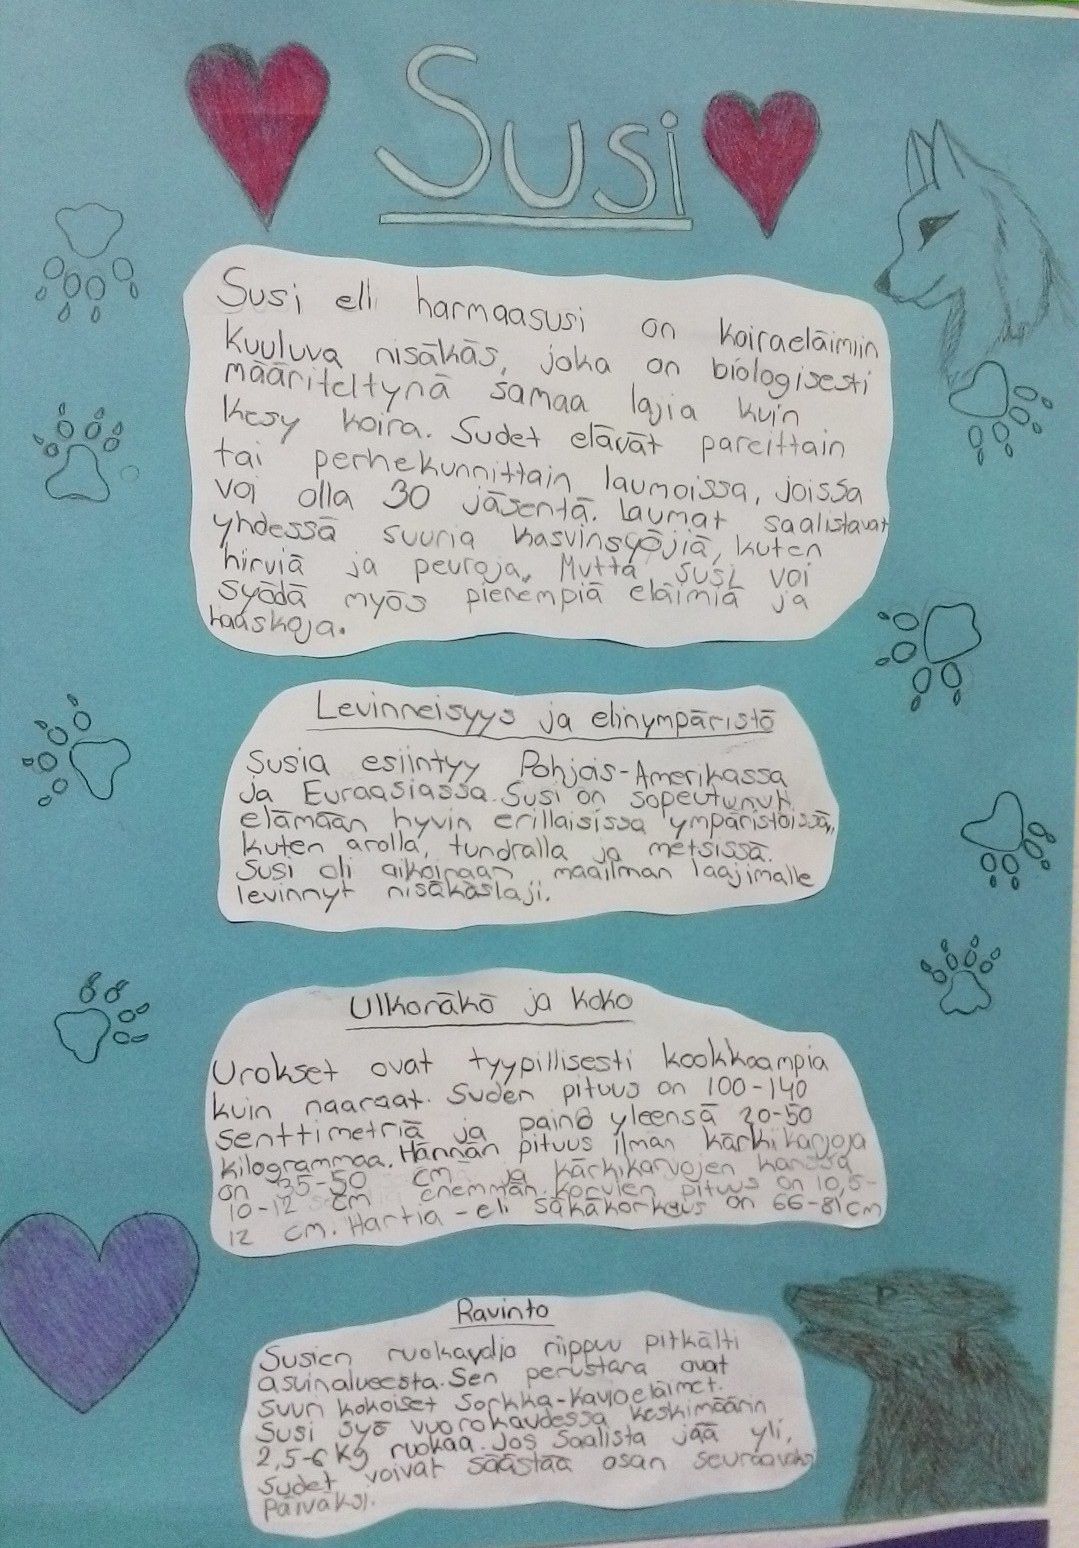 Susi
Susi eli harmaasusi on koiraeläimiin
kuuluva nisäkäs, joka on biologisesti
määriteltynä samaa lajia kuin
kesy koira. Sudet elävät pareittain
tai perhekunnittain laumoissa, joissa
voi olla 30 jäsentä. Laumat saalistavat
yhdessä suuria kasvinsyöjiä, kuten
hirviä ja peuroja. Mutta susi voi
syödä myös pienempiä eläimiä ja
haaskoja.
Levinneisyys ja elinympäristö
Susia esiintyy Pohjois-Amerikassa
ja Euraasiassa. Susi on sopeutunut
elämään hyvin erillaisissa ympäristöissä,
kuten arolla, tundralla ja metsissä.
Susi oli aikoinaan maailman laajimalle
levinnyt nisäkäslaji.
Ulkonäkö ja koko
Urokset ovat tyypillisesti kookkaampia
kuin naaraat. Suden pituus on 100-140
senttimetriä ja paino yleensä 20-50
kilogrammaa. Hännän pituus ilman kärkikarvoja
on 35-50 cm ja kärkikarvojen kanssa
10-12 cm enemmän. Korvien pituus on 10,5-
12 cm. Hartia-eli säkäkorkeus on 66-81cm
Ravinto
Susien ruokavalio riippuu pitkälti
asuinalueesta. Sen perustana ovat
suuri kokoiset Sorkka-kavioeläimet.
Susi syö vuorokaudessa keskimäärin
2,5-6 kg ruokaa. Jos Saalista jää yli,
Sudet voivat säästää osan seuraavaksi
päiväksi.